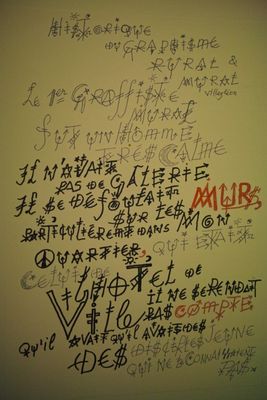 HISTORIQUE
DU GRAPHISME
RURAL &
MURAL
villageien
Le 1er GRAFFISTE
MURAL
FUT UN HOMME
TRES CALME
IL N'AVAIT
PAS DE GALERIE
IL SE DEFOULAIT
SUR LES MURS
PARTICULIEREMENT DANS MON
QUARTIER, QUI ETAIT
CELUI DE
L'HOTEL DE
VILLE IL NE SE RENDAIT
PAS COMPTE
QU'IL AVAIT AVAIT
DES DISCIPLES JEUNE
QUI NE CONNAISSAIENT
PAS